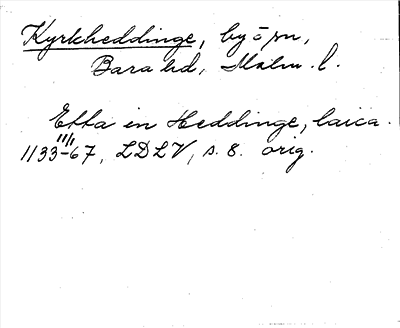 Kyrkheddinge, by o sn,
Bara hd, Malm. l.
Etta in Heddinge, laica.
11/1
1133-67, LDLV, s. 8. orig.